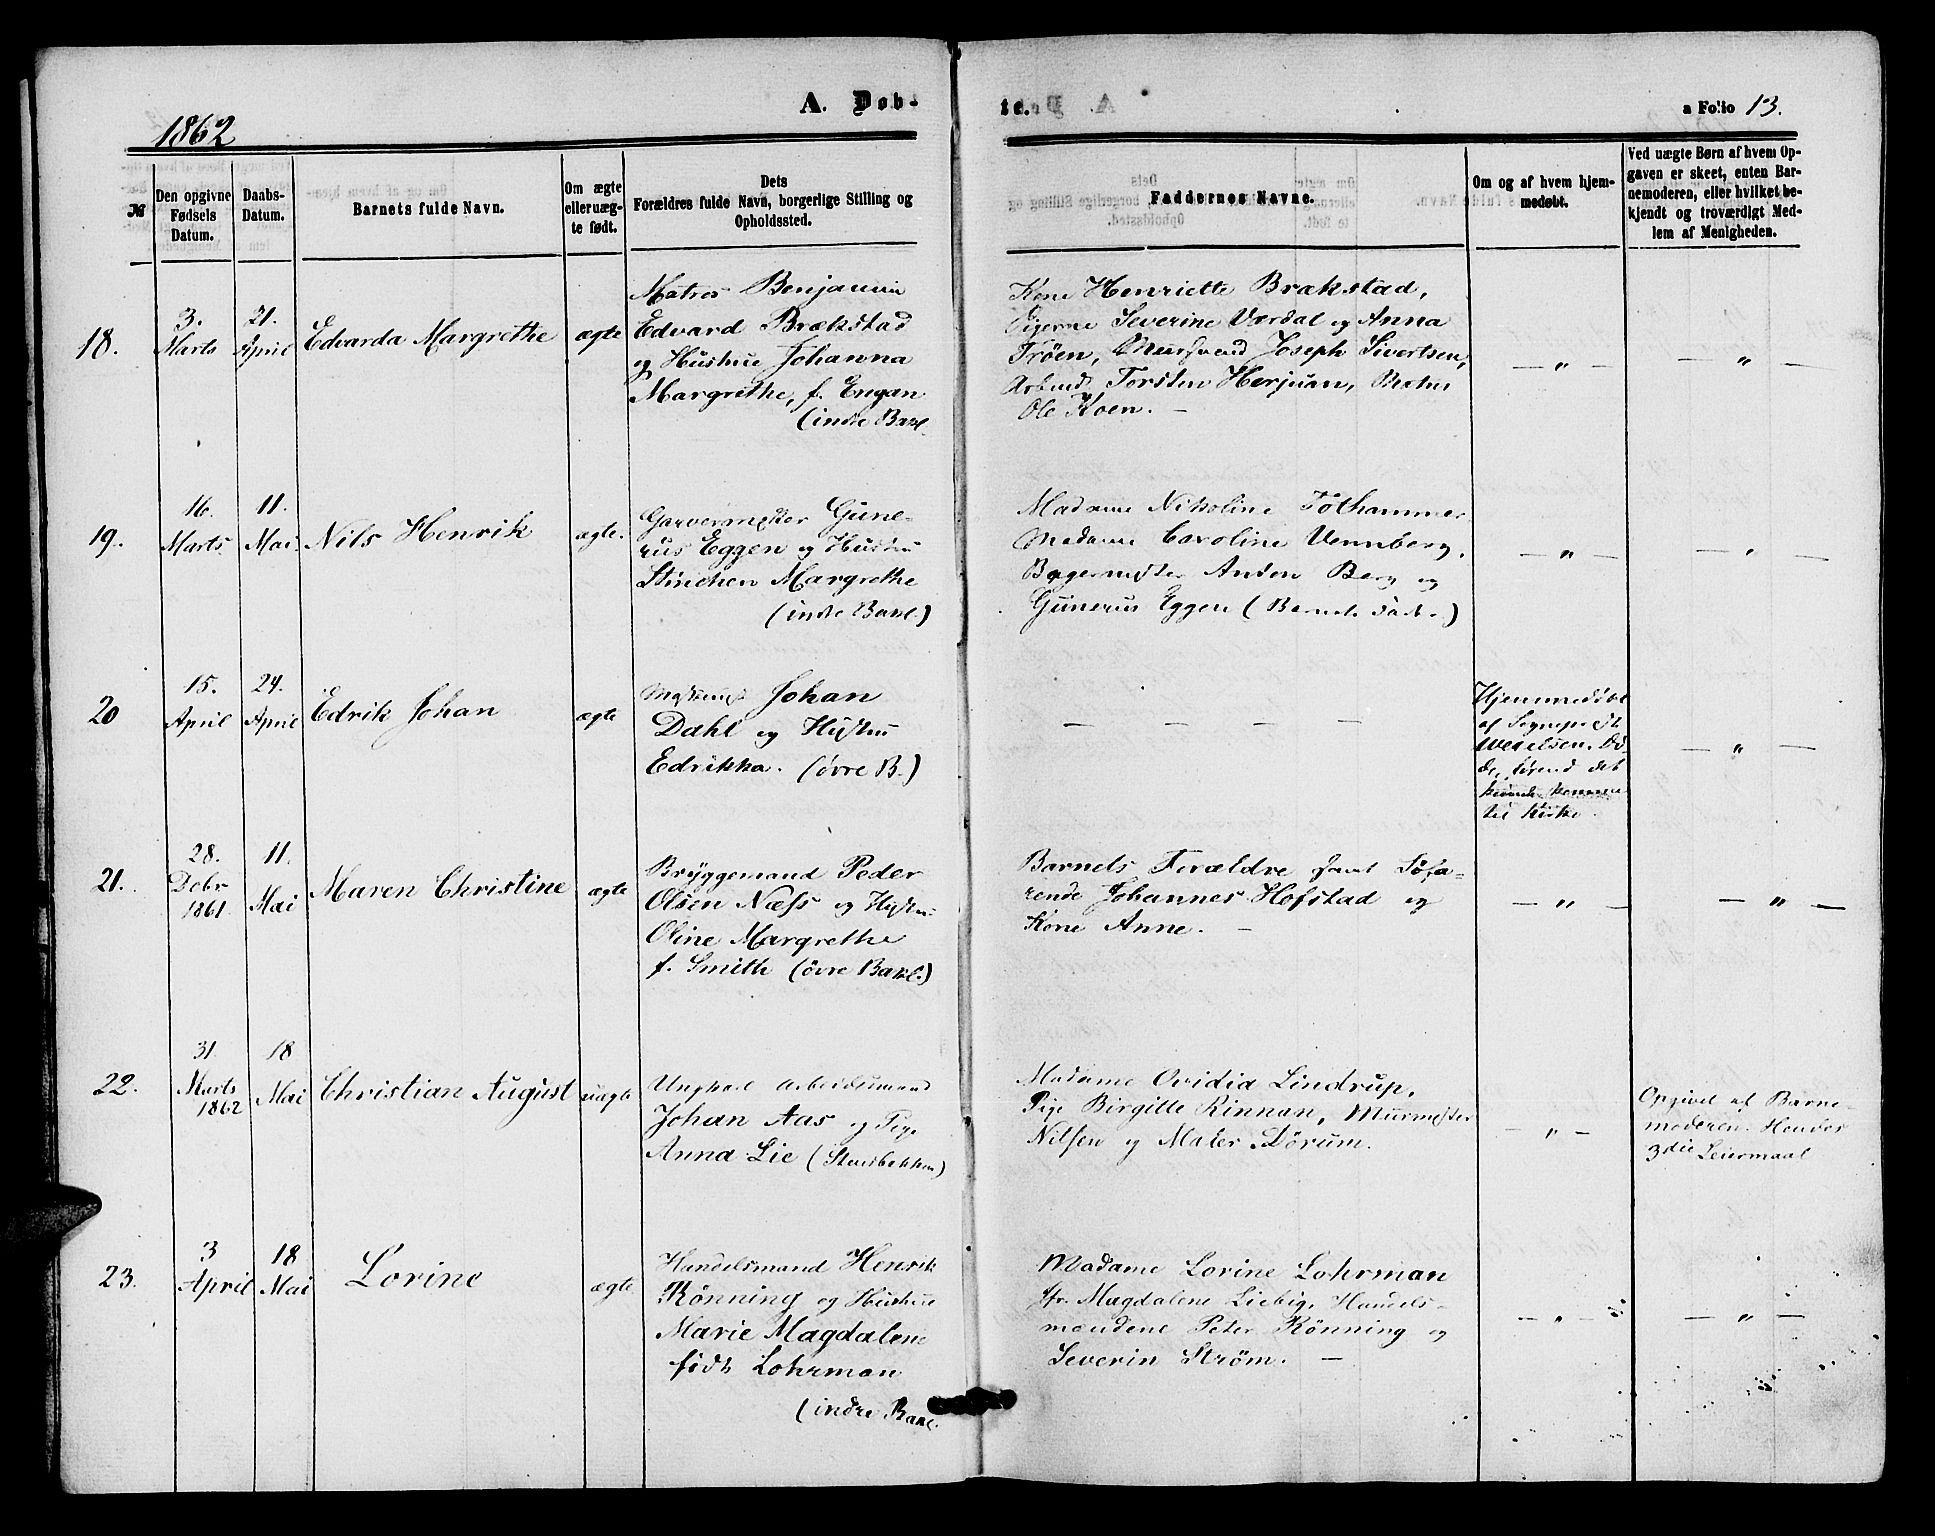 1862
A. Døb-
te.
a Folio 13.
№
Den opgivne
Fødsels
Datum.
Daabs-
Datum.
Barnets fulde Navn.
Om ægte
eller uæg-
te født.
Dets
Forældres fulde Navn, borgerlige Stilling og
Opholdssted.
Faddernes Navne.
Om og af hvem hjem-
medøbt.
Ved uægte Børn af hvem Op-
gaven er skeet, enten Bar-
nemoderen, eller hvilket be-
kjendt og troværdigt Med-
lem af Menigheden.
18.
3.
Marts
21.
April
Edvarda Margrethe
ægte
Matros Benjamin
Edvard Brækstad
og Hustrue Johanna
Margrethe, f. Engan
(indre Bakl.
Kone Henriette Brakstad,
Pigerne Severine Værdal og Anna
Trøen, Muursvend Joseph Sivertsen,
Arbmd. Torsten Herjuan,
Ole Koen. —
— „ —
— „ —
19.
16.
Marts
11.
Mai
Nils Henrik
ægte.
Garvermester Gune-
rus Eggen og Hustru
Stinchen Margrethe
(indre Bakl.)
Madame Nikoline Tothammer
Madame Caroline Vennberg,
Bagermester Anton Berg og
Gunerus Eggen (Barnets Fader)
— „ —
— „ —
20
15.
April
24.
April
Edrik Johan
ægte
Johan
Dahl og Hustru
Edrikka. (övre B.)
— — — —
Hjemmedöbt
af Sogneprest
Wexelsen. Dö-
de, förend det
kunde komme
til Kirke.
— „ —
21.
28.
Debr
1861.
11.
Mai
Maren Christine
ægte
Bryggemand Peder
Olsen Næss og Hustru
Oline Margrethe
f. Smith (övre Bakl.)
Barnets Forældre samt Söfa-
rende Johannes Hofstad og
Kone Anne. —
— „ —
— „ —
22.
31.
Marts
1862
18
Mai
Christian August
uægte
Ungkarl Arbeidsmand
Johan Aas og Pige
Anna Lie (Steinbakken)
Madame Ovidia Lindrup,
Pige Birgitte Rinnan, Murmester
Nilsen og Maler Störum.
— „ —
Opgivet af Barne-
moderen. Hendes
3die Leiermaal
23.
3
April
18
Mai
Lorine
ægte
Handelsmand Henrik
Rönning og Hustrue
Marie Magdalene
födt Lohrman
(indre Bakl.
Madame Lorine Lohrman
fr. Magdalene Liebig, Handels-
mændene Peter Rönning og
Severin Ström. —
— „ —
— „ —